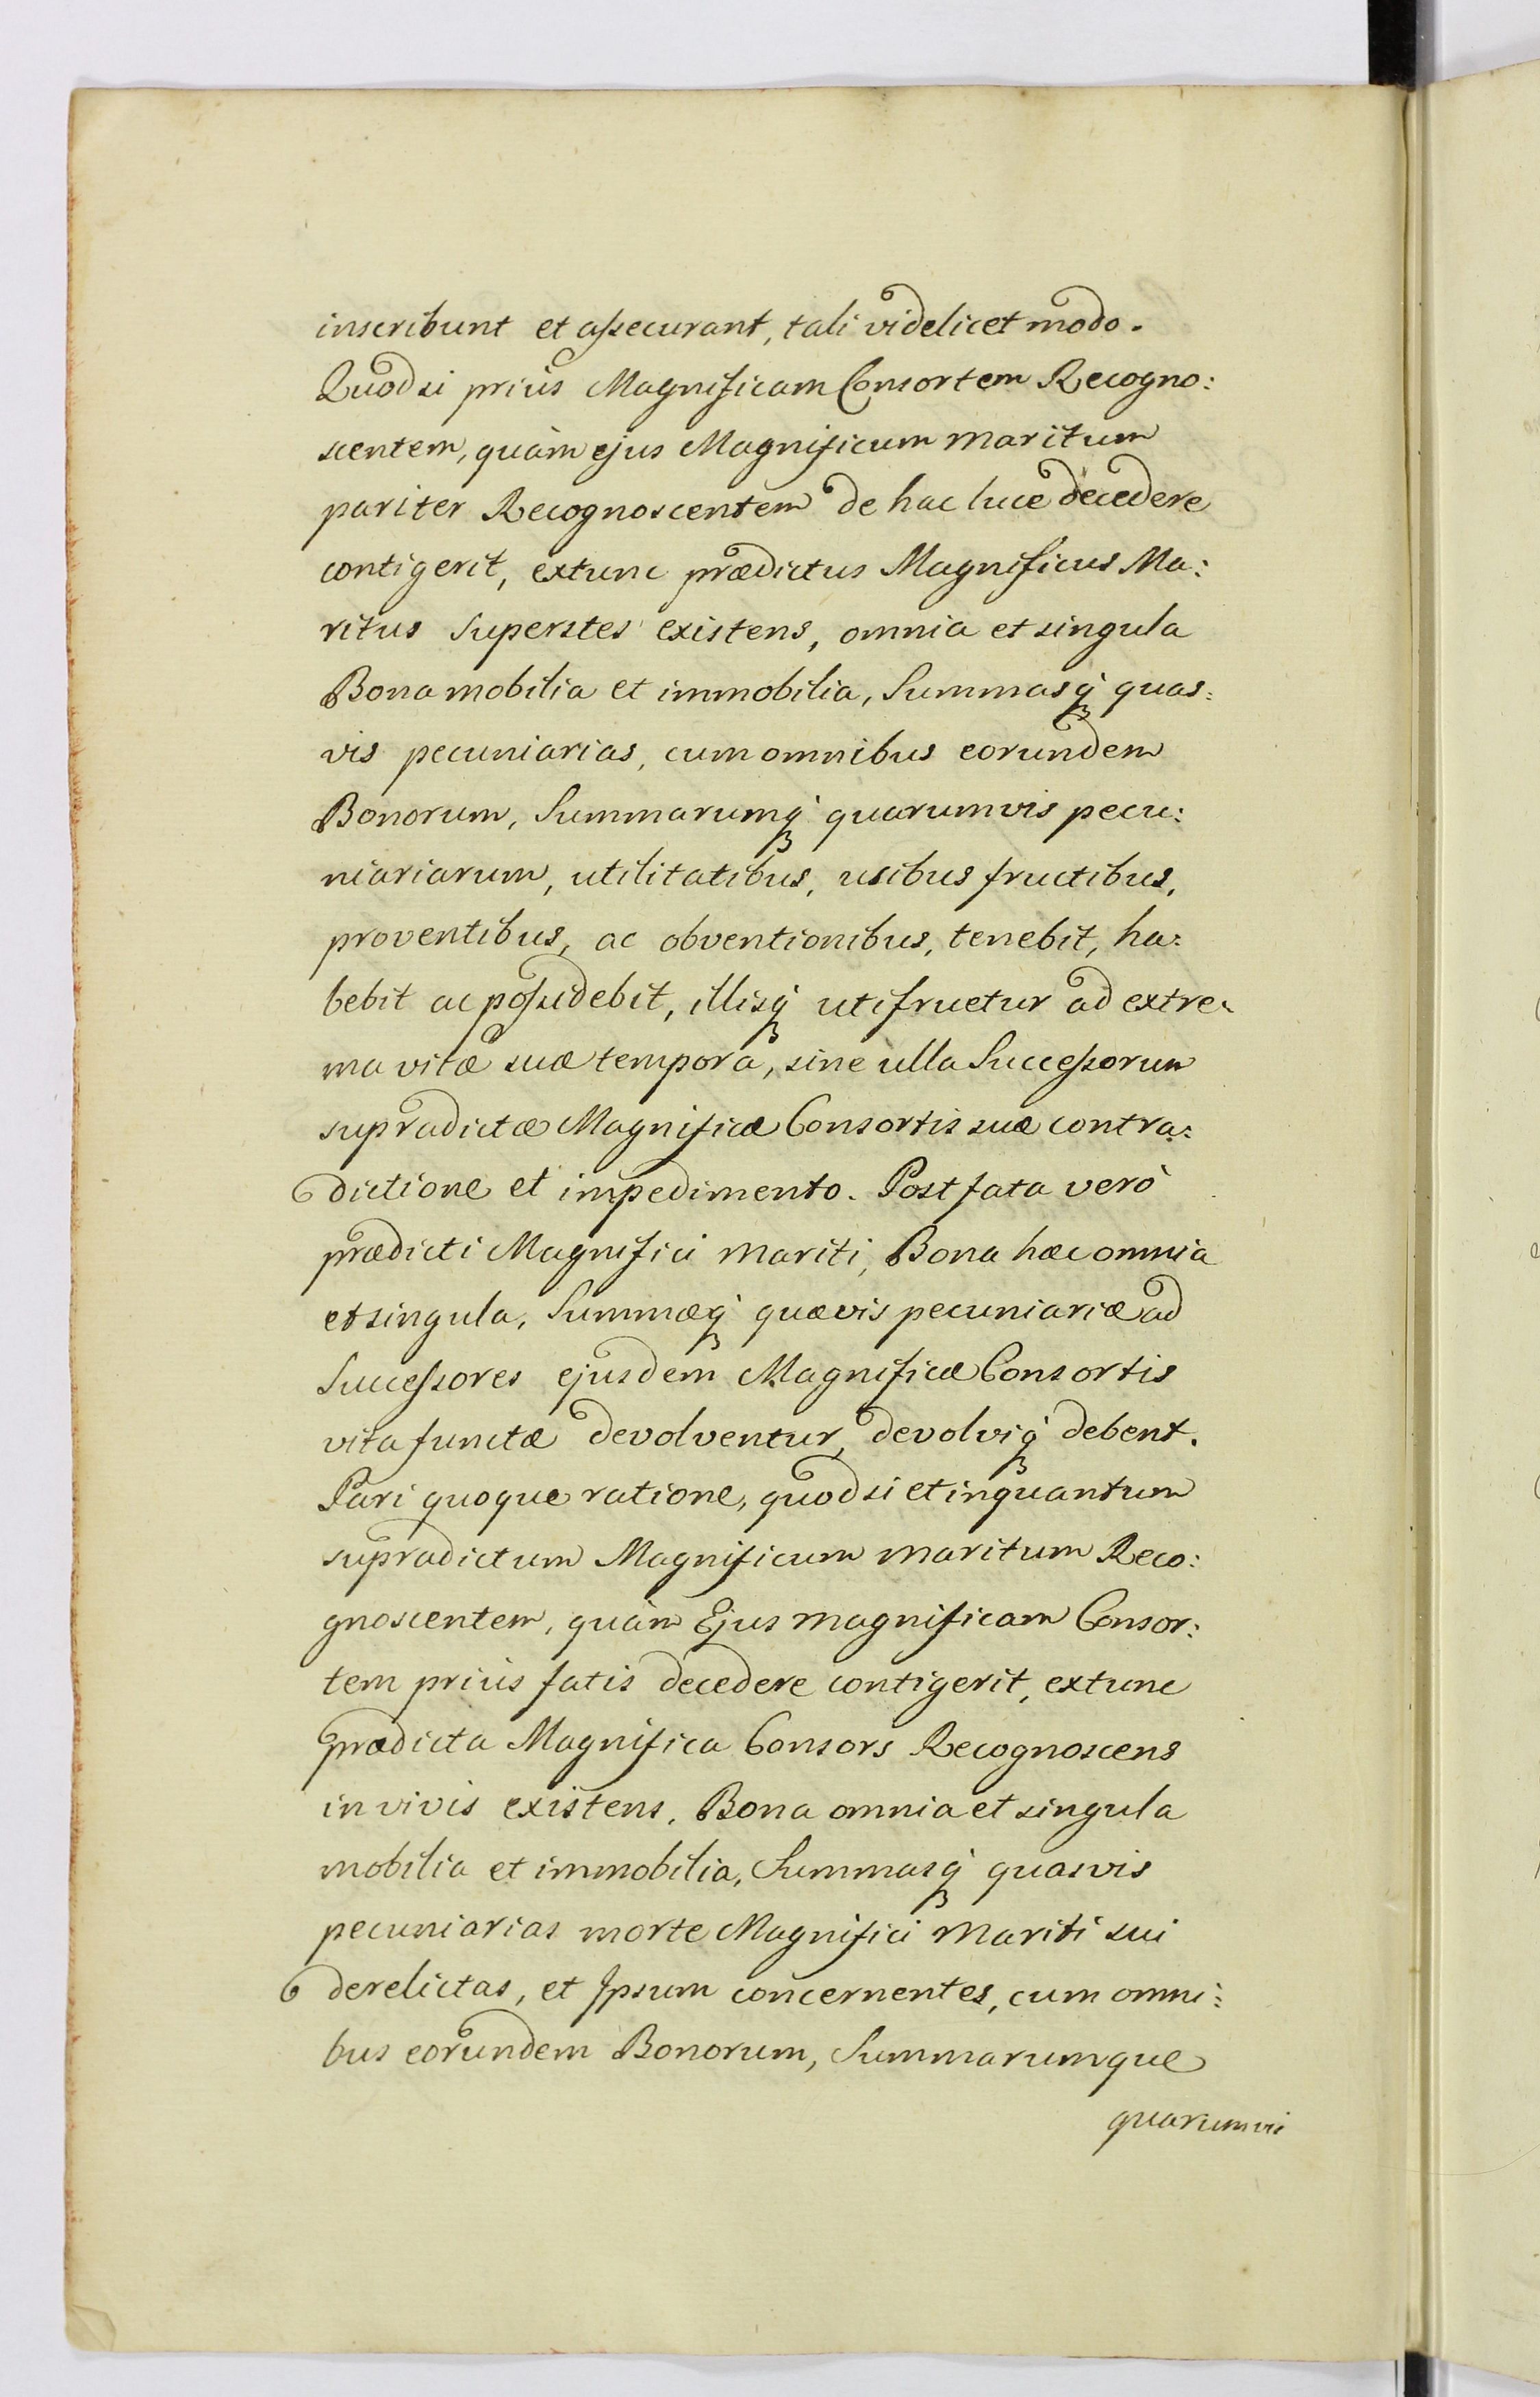 inscribunt et aſsecurant, tali videlicet modo.
Quodsi priùs Magnificam Consortem Recogno:
scentem, quàm ejus Magnificum Maritum
pariter Recognoscentem de hac luce decedere
contigerit, extunc prædictus Magnificus Ma:
ritus Superstes existens, omnia et singula
Bona mobilia et immobilia, Summasq́ȝ quas:
vis pecuniarias, cum omnibus eorundem
Bonorum, Summarumq́ȝ quarumvis pecu:
niariarum, utilitatibus, usibus fructibus,
proventibus, ac obventionibus, tenebit, ha:
bebit ac poſsidebit, illisq́ȝ utifruetur ad extre:
ma vitæ suæ tempora, sine ulla Succeſsorum
supradictæ Magnificæ Consortis suæ contra:
dictione et impedimento. Post fata verò
prædicti Magnifici Mariti, Bona hæc omnia
et singula, Summæq́ȝ quævis pecuniariæ ad
Succeſsores ejusdem Magnificæ Consortis
vita functæ devolventur, devolviq́ȝ debent.
Pari quoque ratione, quodsi et inquantum
supradictum Magnificum Maritum Reco:
gnoscentem, quàm Ejus Magnificam Consor:
tem priùs fatis decedere contigerit, extunc
prædicta Magnifica Consors Recognoscens
in vivis existens, Bona omnia et singula
mobilia et immobilia, Summasq́ȝ quasvis
pecuniarias morte Magnifici Mariti sui
derelictas, et Ipsum concernentes, cum omni:
bus eorundem Bonorum, Summarumque
quarumvis